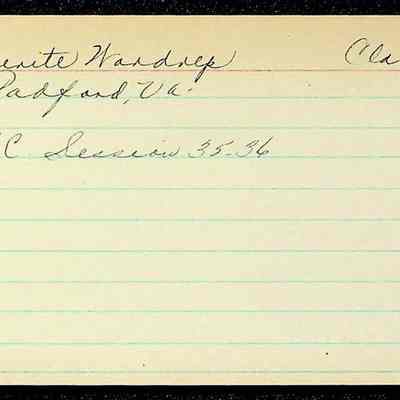 erite Wardrep Cla
Radford, Va.
C Session 35-36